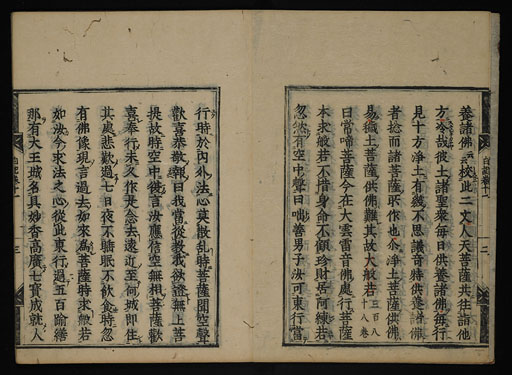 養諸佛云云校此二文人天菩薩共往諸他
方今哉彼土諸聖衆毎日供養諸佛毎行
見十方淨土有幾不思議音特供養諸佛
者捴而諸菩薩所作也今淨土菩薩供佛
易穢土菩薩供佛難其故大般若三百八十八卷
曰常啼菩薩今在大雲雷音佛處行菩薩
本求般若不惜身命不顧珍財居阿練若
忽然有空中聲曰咄善男子汝可東行當
行時於內外法心莫散乱時菩薩聞空聲
歡喜恭敬報曰我當從教我欲證無上菩
提故時空中復言汝應信空無相菩薩歡
喜奉行未久作是念去遠近至何城即住
其處悲歎過七日夜不聽眠不飲食時忽
有佛像現言過去如來為菩薩時求般若
如汝今求法之心從此東行過五百踰繕
那有大王城名具妙香高廣七寶成就人
二
三